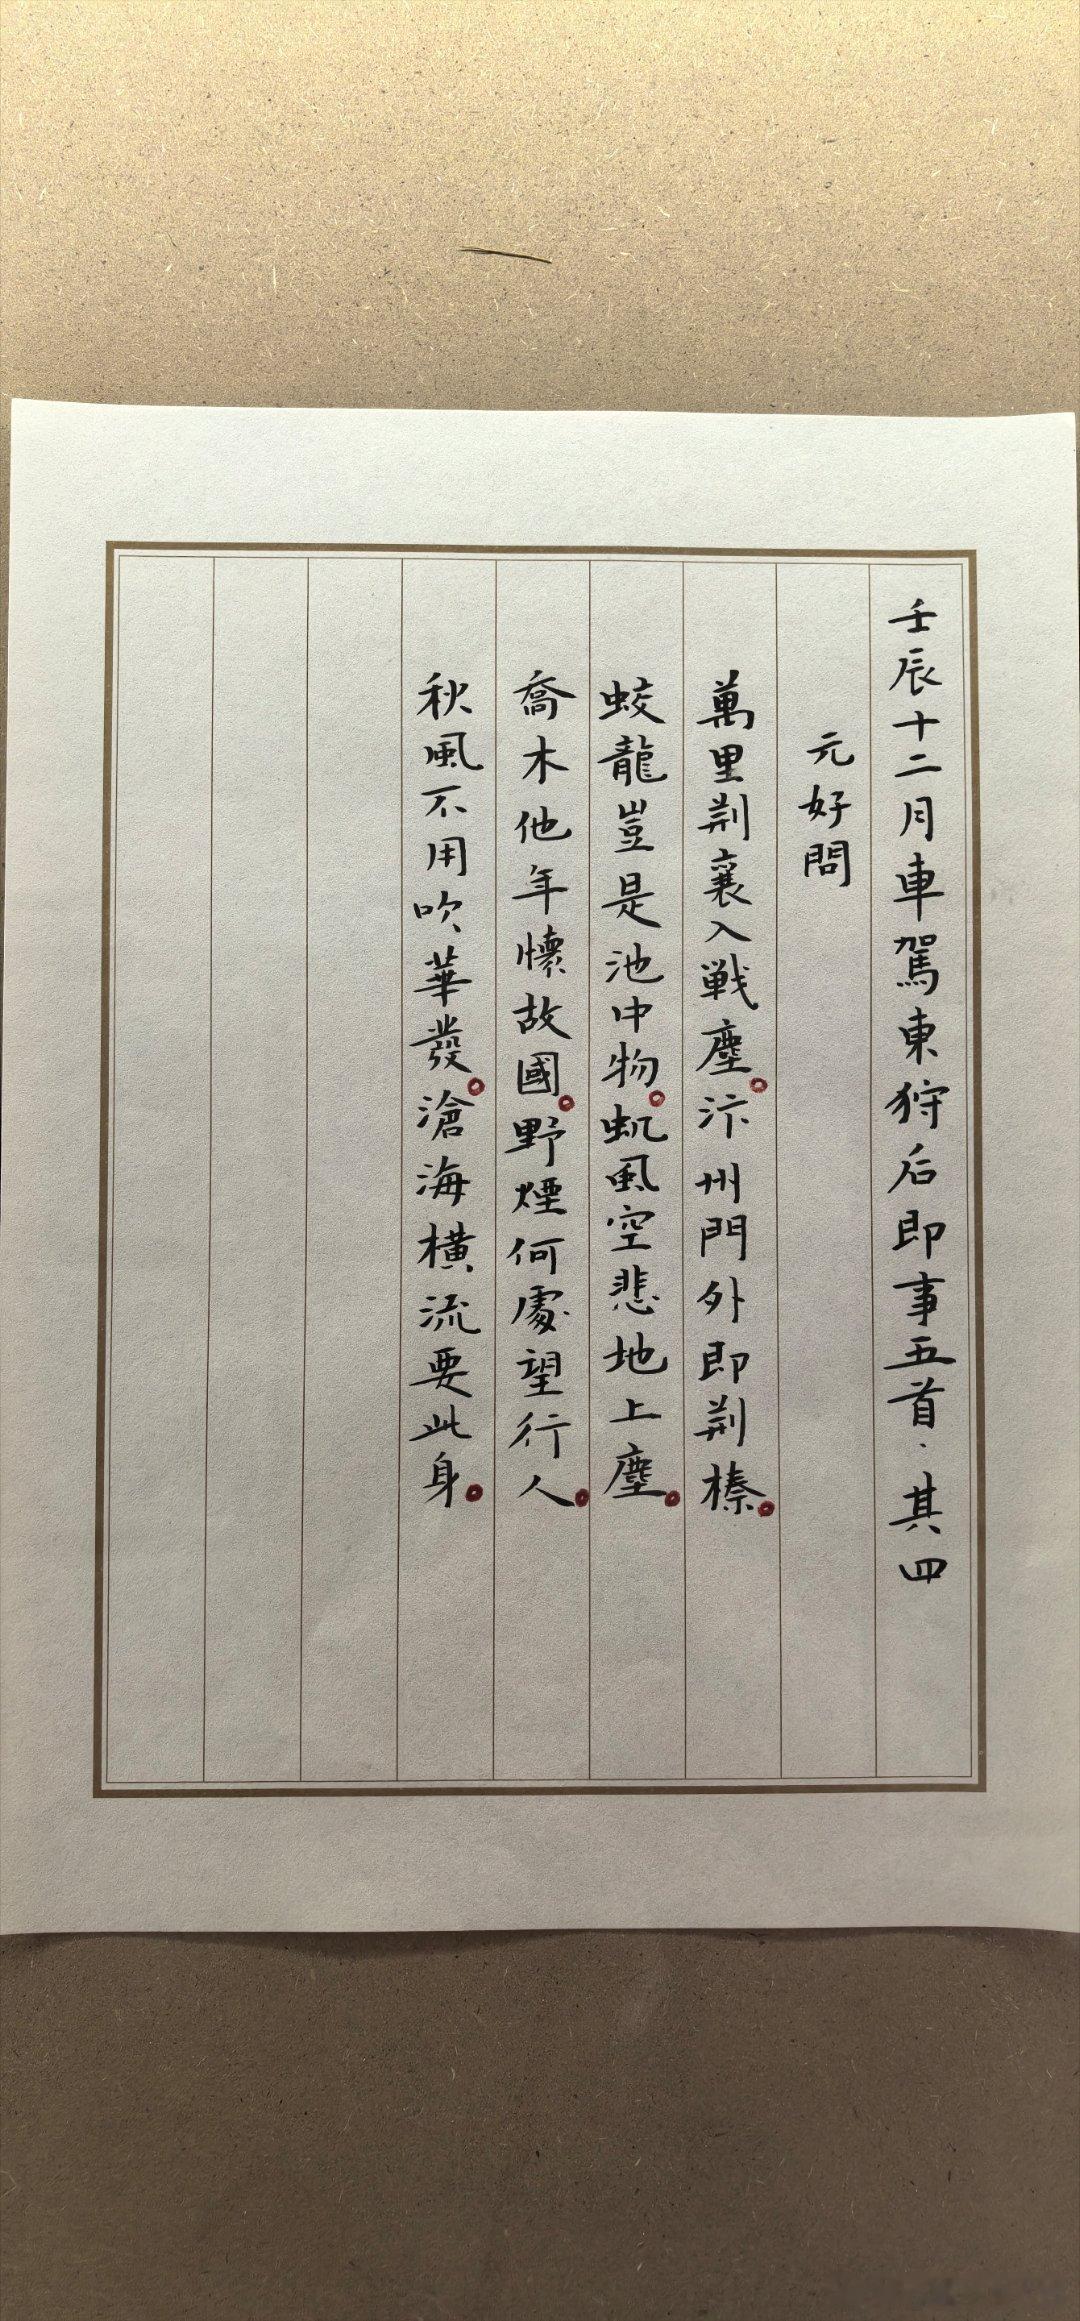 壬辰十二月車駕東狩后即事五首·其四
元好問
萬里荆襄入戦塵。汴州門外即荆榛。
蛟龍豈是池中物。虮虱空悲地上塵。
喬木他年懷故國。野煙何處望行人。
秋風不用吹華發。滄海橫流要此身。